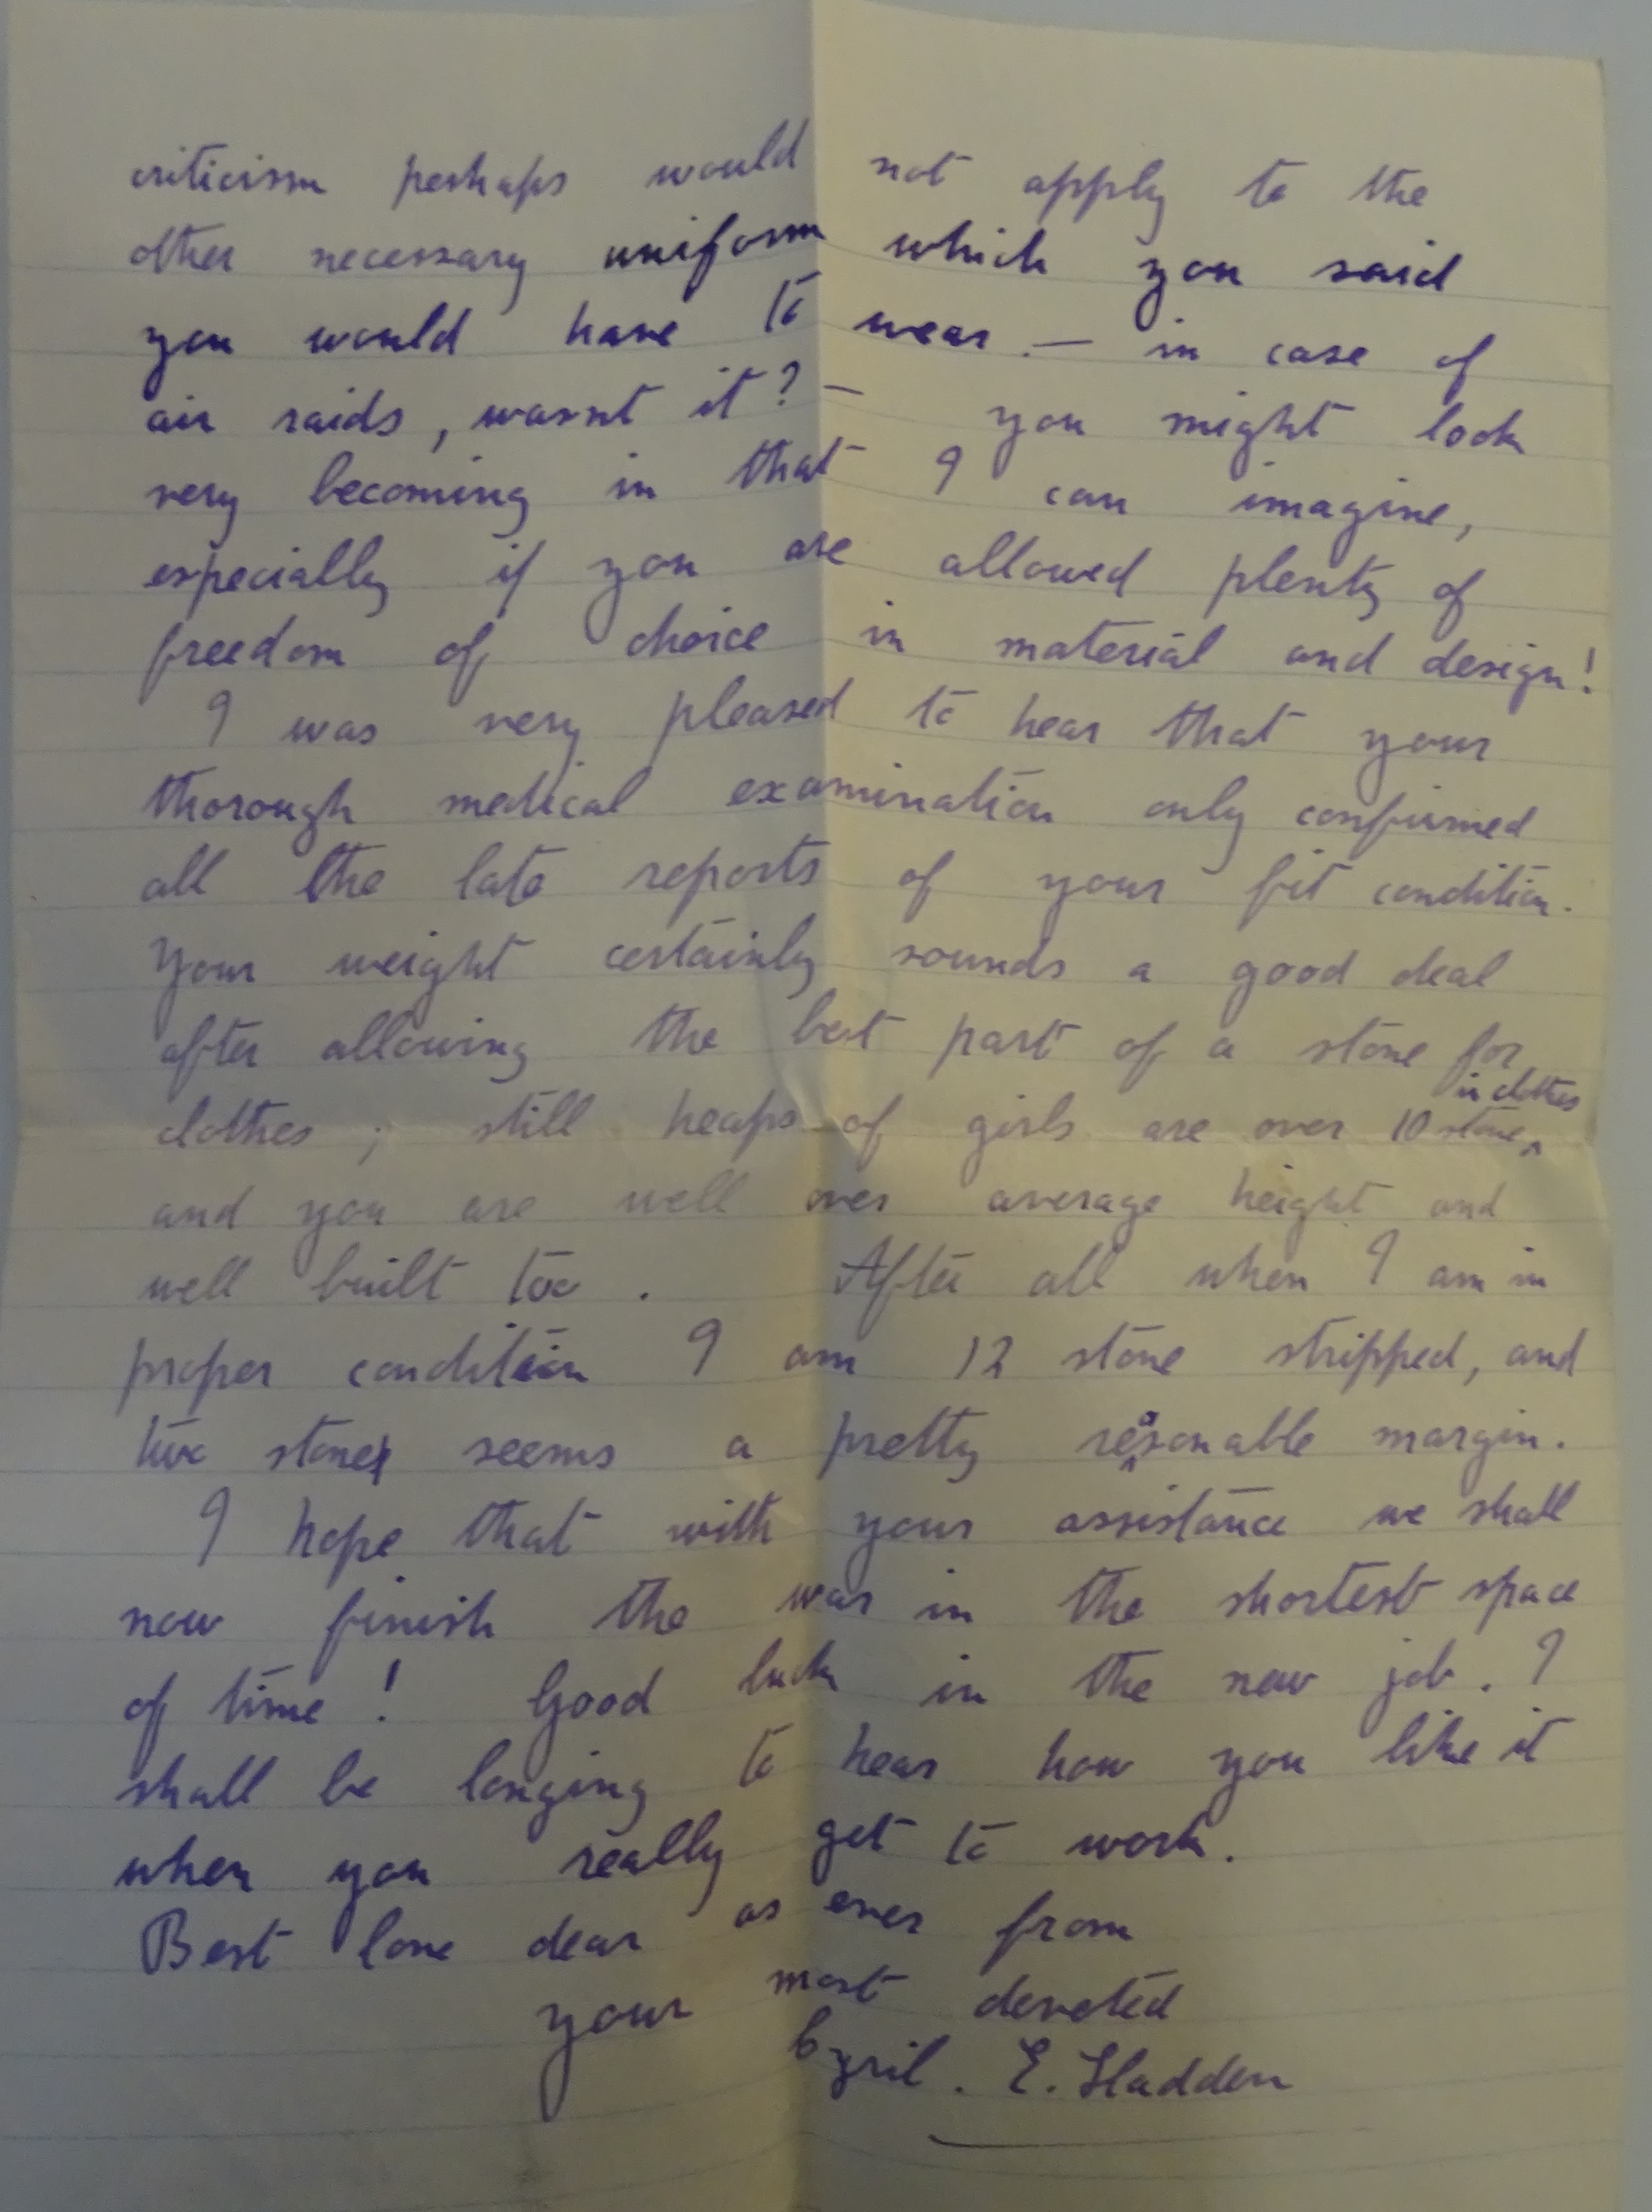 criticism perhaps would not apply to the
other necessary uniform which you said
you would have to wear. — in case of
air raids, wasnt it? — you might look
very becoming in that I can imagine,
especially if you are allowed plenty of
freedom of choice in material and design!
I was very pleased to hear that your
thorough medical examination only confirmed
all the late reports of your fit condition.
Your weight certainly sounds a good deal
after allowing the best part of a stone for
clothes; still heaps of girls are over 10 stone in clothes
and you are well over average height and
well built too. After all when I am in
proper condition I am 12 stone stripped, and
two stone seems a pretty reasonable margin.
I hope that with your assistance we shall
now finish the war in the shortest space
of time! Good luck in the new job. I
shall be longing to hear how you like it
when you really get to work.
Best love dear as ever from
your most devoted
Cyril. E. Sladden